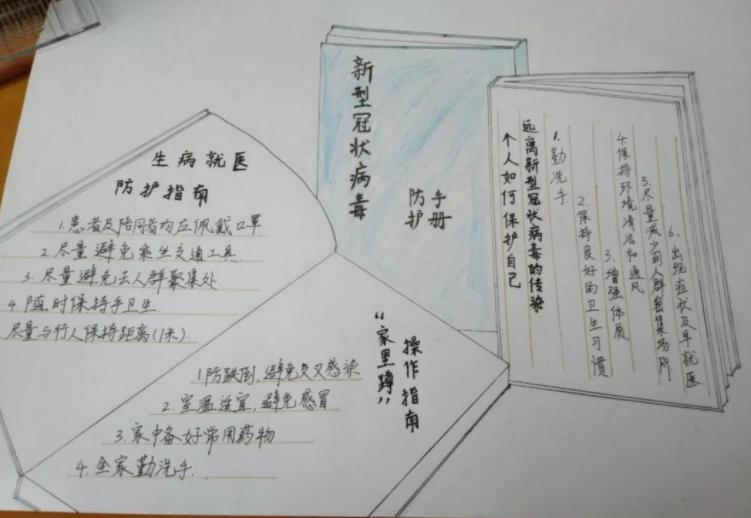 新型冠状病毒
防护
手册
远离新型冠状病毒的传染
个人如何保护自己
1.勤洗手
2.保持良好的卫生习惯
3.增强体质
4.保持环境清洁和通风
5.尽量减少到人群密集场所
6.出现症状及早就医
生病就医
防护指南
1.患者及陪同者均应佩戴口罩
2.尽量避免乘坐交通工具
3.尽量避免去人群聚集处
4.随时保持手卫生
尽量与行人保持距离(1米).
“家里蹲”
操作指南
1.防跌倒,避免交叉感染
2.室温适宜,避免感冒
3.家中备好常用药物
4.全家勤洗手.